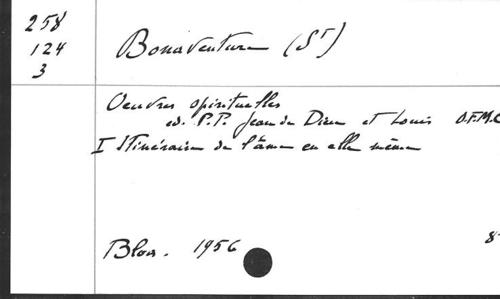 258
124
3
Bonaventure (St)
Oeuvres spirituelles
ed. P.P. Jean de Dieu et Louis O.F.M.C
I Itinéraire de l'âme en elle même
Blois. 1956
8